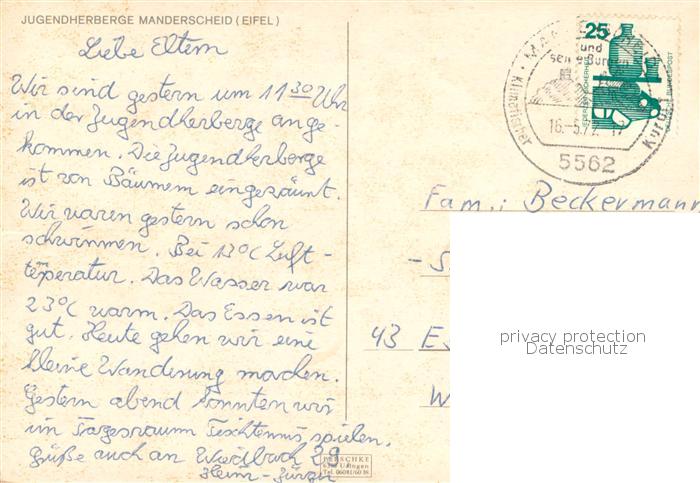 JUGENDHERBERGE MANDERSCHEID (EIFEL)
Liebe Eltern
Wir sind gestern um 11³⁰ Uhr
in der Jugendherberge ange-
kommen. Die Jugendherberge
ist von Bäumen eingezäunt.
Wir waren gestern schon
schwimmen. Bei 13°C Luft-
temperatur. Das Wasser war
23°C warm. Das Essen ist
gut. Heute gehen wir eine
kleine Wanderung machen.
Gestern abend konnten wir
im Tagesraum Tischtennis spielen.
Grüße auch an Waidbuch 29
Heinz-Jürgen
25
und
seine Burgen
Heilklimatischer Kurort
16.-5.7
17
5562
DEUTSCHE BUNDESPOST
Fam.: Beckermann
43 Es
W
privacy protection
Datenschutz
PERSCHKE
Usingen
Tel. 06081/60 39